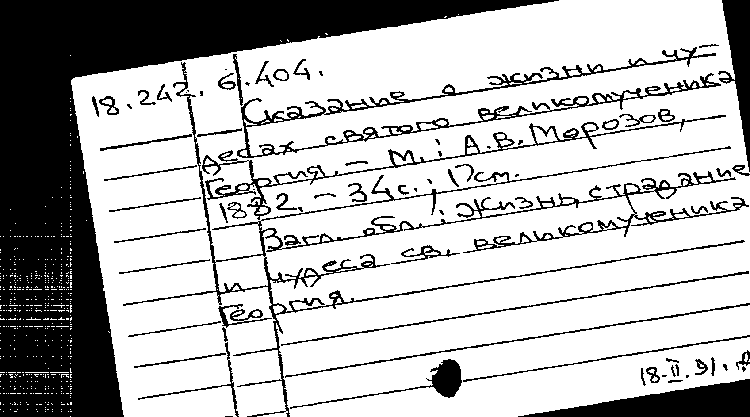 18.242.6.404.
Сказание о жизни и чу-
десах святого великомученика
Георгия. – М.: А.В. Морозов,
1882. – 34 с.; 17 см.
Загл. обл.: Жизнь, страдание
и чудеса св. великомученика
Георгия.
18-II.91.